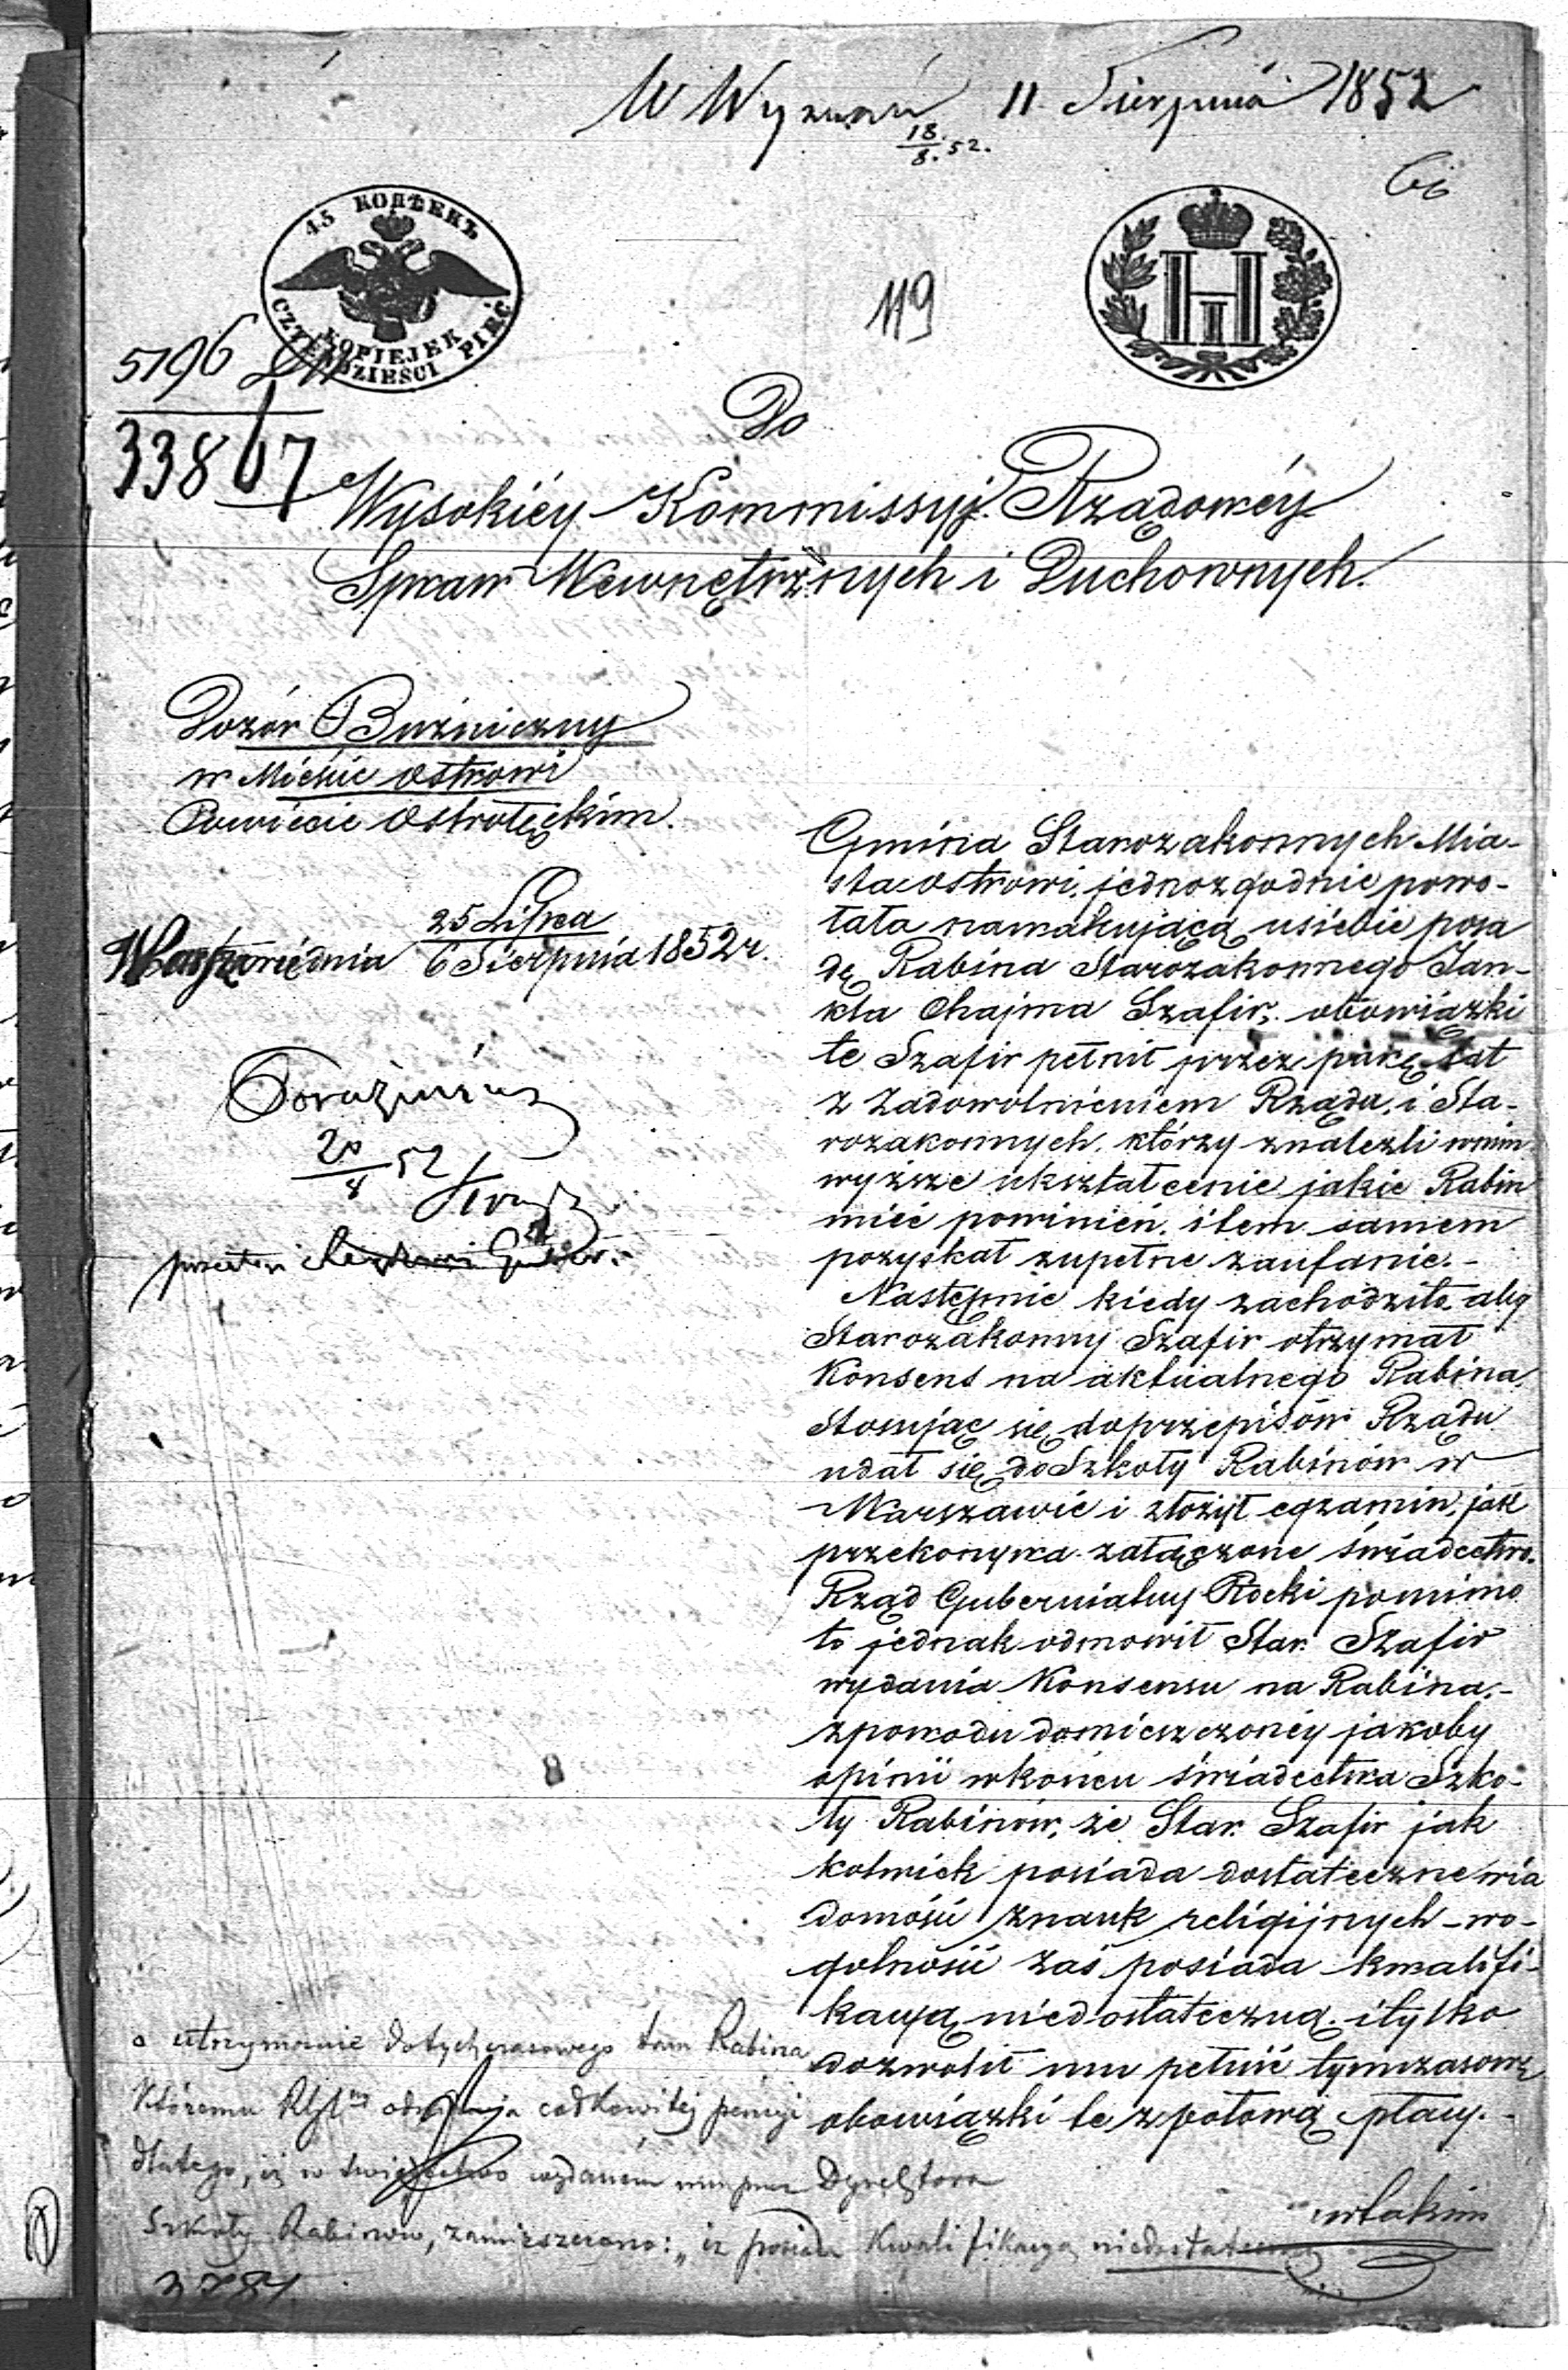 W Wyznań 11 Sierpnia 1852
18/8. 52.
66
45 КОПѢЕКЪ
CZTERDZIEŚCI PIĘĆ
KOPIEJEK
119
5196
33867
Do
Wysokiéy Kommissyi Rządowéy
Spraw Wewnętrznych i Duchownych.
Dozór Bużniczny
w Mieście Ostrowi
Powiecie Ostrołęckim.
dnia 25 Lipca
6 Sierpnia 1852 r.
20/8 52
Gmina Starozakonnych Mia-
sta Ostrowi jednozgodnie powo-
łała na wakującą u siebie posa
dę Rabina Starozakonnego Jan-
kla Chajma Szafir, obowiązki
te Szafir pełnił przez parę lat
z zadowolnieniem Rządu, i Sta-
rozakonnych, którzy znalezli w nim
wyższe ukształcenie jakie Rabin
mieć powinień, i tem samem
pozyskał zupełne zaufanie.-
Następnie kiedy zachodziło aby
Starozakonny Szafir otrzymał
Konsens na aktualnego Rabina,
Stosując się do przepisów Rządu
udał się do Szkoły Rabinów w
Warszawie i złożył egzamin, jak
przekonywa załączone świadectwo.
Rząd Gubernialny Płocki pomimo
to jednak odmowił Star. Szafir
wydania Konsensu na Rabina.-
z powodu domieszczonéy jakoby
opinii w końcu świadectwa Szko-
ły Rabinów, że Star. Szafir jak
kolwiek posiada dostateczne wia
domości z nauk religijnych - wo-
golności zaś posiada kwalifi-
kacyą niedostateczną. i tylko
dozwolił mu pełnić tymczasowe
obowiązki te z połową płacy.-
w takim
o utrzymanie dotychczasowego tam Rabina
Któremu odmawia całkowitej pensyi
dlatego, iż w świadectwo wydanem mu przez Dyrektora
Szkoły Rabinów, zamieszczono: „iż posiada Kwalifikacyą niedostateczną
3781